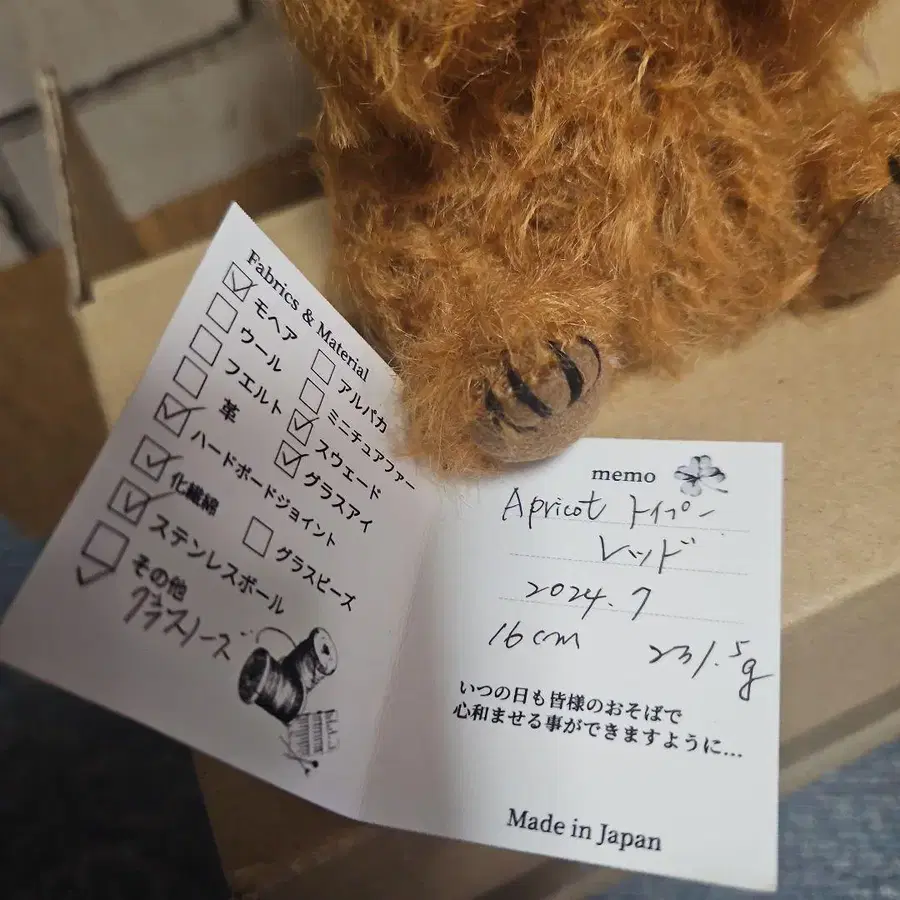 Fabrics & Material
モヘア
ウール
フエルト
革
ハードボードジョイント
化繊綿
ステンレスボール
その他
グラスノーズ
アルパカ
ミニチュアファー
スウェード
グラスアイ
グラスビーズ
memo
Apricot トイプー
レッド
2024.7
16cm 231.5g
いつの日も皆様のおそばで
心和ませる事ができますように...
Made in Japan